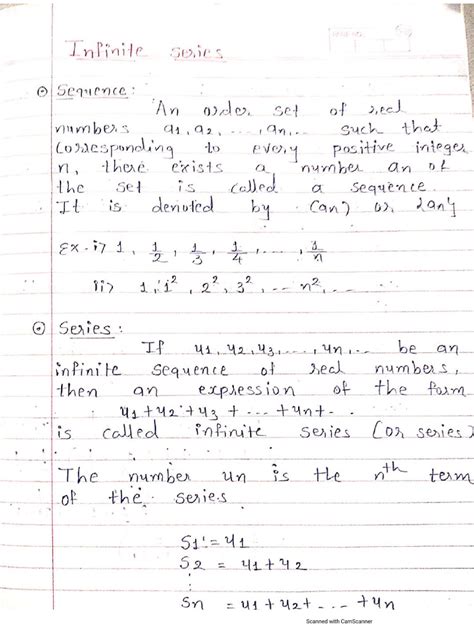 Infinite series
⊙ Sequence :
An order set of real
numbers a1, a2, ..., an, .. such that
corresponding to every positive integer
n, there exists a number an of
the set is called a sequence.
It is denoted by (an) or, {an}
Ex. i> 1, 1/2, 1/3, 1/4, ..., 1/n
ii> 1, 1², 2², 3², ... n², ..
⊙ Series :
If u1, u2, u3, ..., un, .. be an
infinite sequence of real numbers,
then an expression of the form
u1 + u2 + u3 + ... + un + ..
is called infinite series (or series)
The number un is the nth term
of the series
S1 = u1
S2 = u1 + u2
Sn = u1 + u2 + ... + un
Scanned with CamScanner